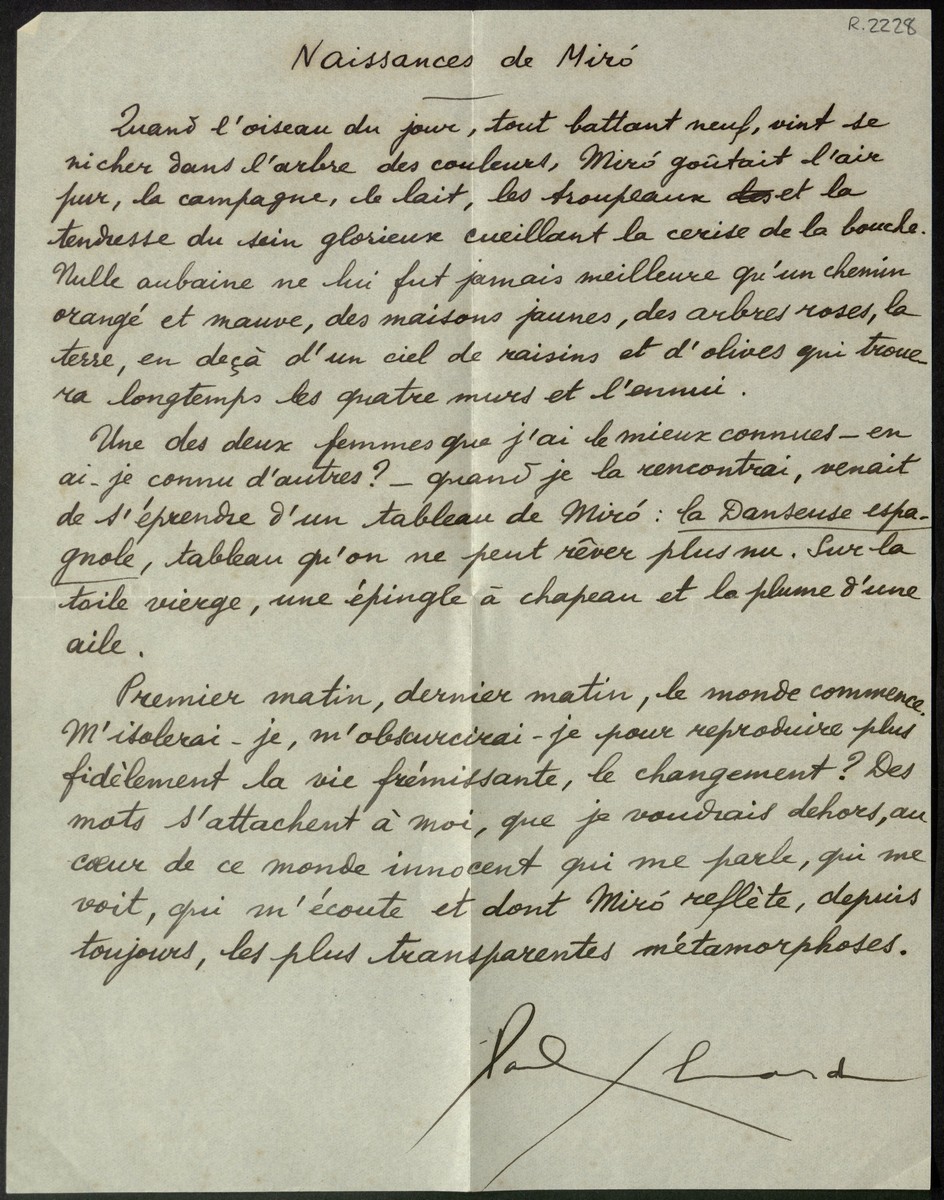 R.2228
Naissances de Miró
Quand l'oiseau du jour, tout battant neuf, vint se
nicher dans l'arbre des couleurs, Miró goûtait l'air
pur, la campagne, le lait, les troupeaux et la
tendresse du sein glorieux cueillant la cerise de la bouche.
Nulle aubaine ne lui fut jamais meilleure qu'un chemin
orangé et mauve, des maisons jaunes, des arbres roses, la
terre, en deçà d'un ciel de raisins et d'olives qui troue-
ra longtemps les quatre murs et l'ennui.
Une des deux femmes que j'ai le mieux connues - en
ai-je connu d'autres? - quand je la rencontrai, venait
de s'éprendre d'un tableau de Miró : la Danseuse espa-
gnole, tableau qu'on ne peut rêver plus nu. Sur la
toile vierge, une épingle à chapeau et la plume d'une
aile.
Premier matin, dernier matin, le monde commence.
M'isolerai-je, m'obscurcirai-je pour reproduire plus
fidèlement la vie frémissante, le changement? Des
mots s'attachent à moi, que je voudrais dehors, au
cœur de ce monde innocent qui me parle, qui me
voit, qui m'écoute et dont Miró reflète, depuis
toujours, les plus transparentes métamorphoses.
Paul Eluard